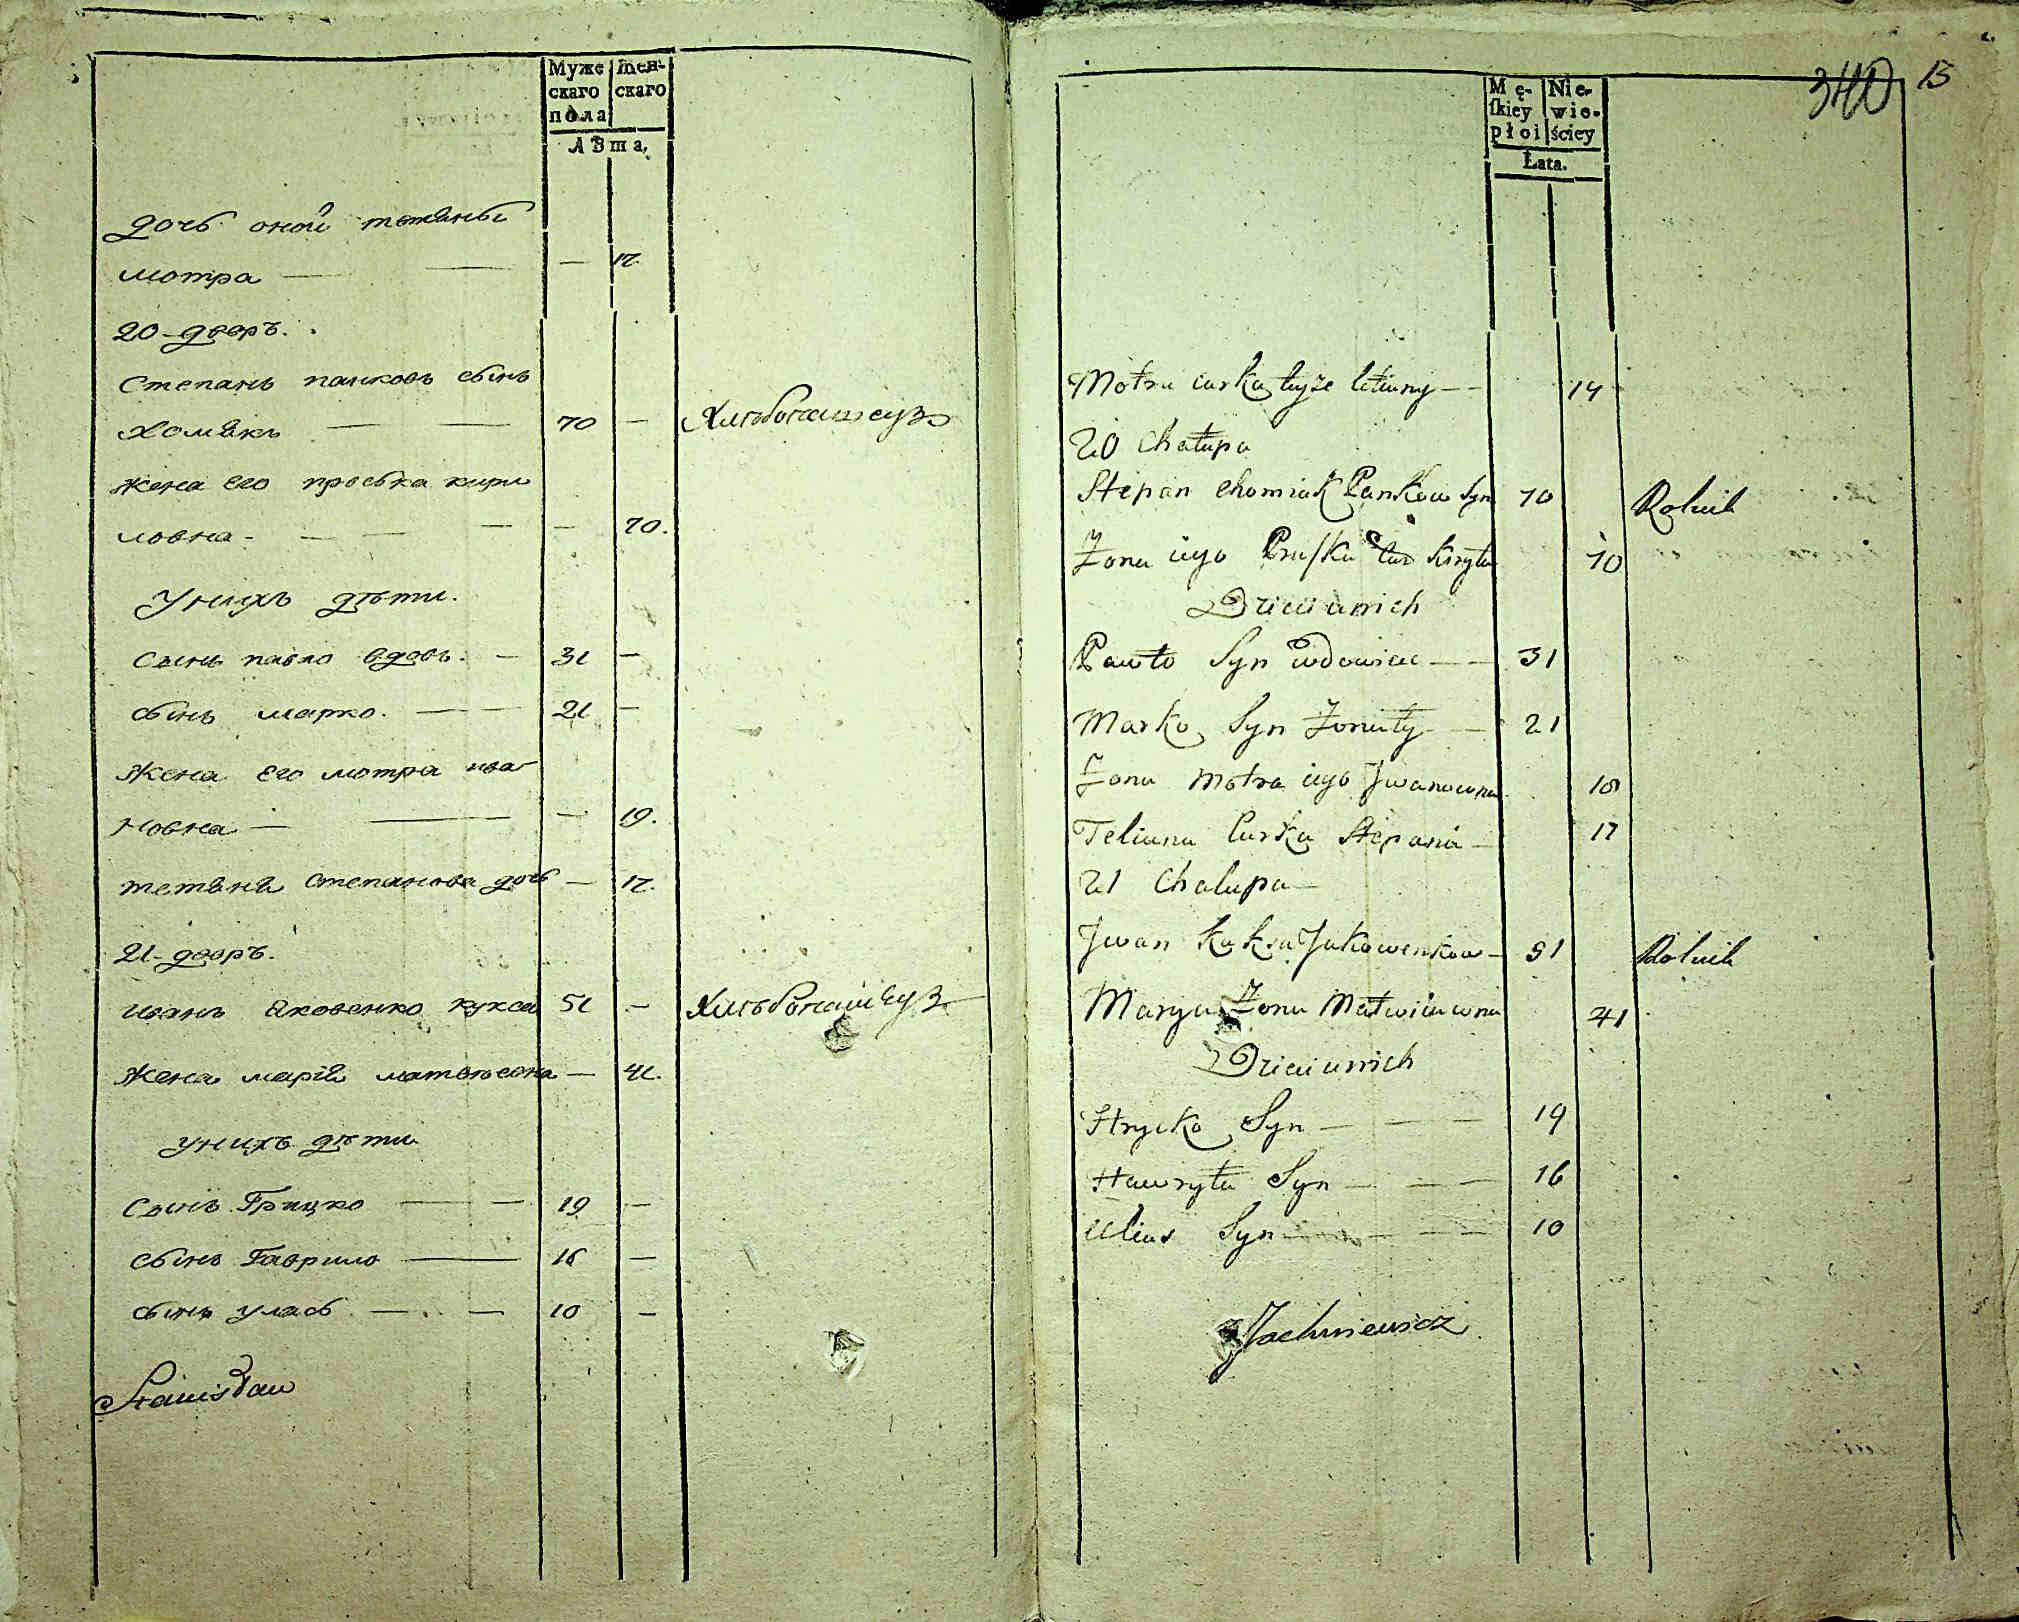 Муже
скаго
пола
жен-
скаго
Лѣта,
дочь оной тетяны
мотра — — — 17.
20-дворъ.
Степанъ панковъ сынъ
Хомякъ — — 70 — Хлѣбопашецъ
жена его проська кири
ловна - — — — 70.
у нихъ дѣти.
сынъ павло вдовъ. — 31 —
сынъ марко. — — 21 —
жена его мотра ива-
новна — — — 19.
тетяна степанова дочь — 17.
21-дворъ.
иванъ яковенко кукса 51 — Хлѣбопашецъ
жена марія матвѣевна — 41.
у нихъ дѣти
сынъ Грицко — — 19 —
сынъ Гаврило — 16 —
сынъ уласъ — — 10 —
Stanisław
340 15
Mę-
skiey
płci
Nie-
wie-
ściey
Łata.
Motra curka tyże tetiany — - 14
20 Chałupa
Stepan Chomiak Pankow Syn 70 Rolnik
Żona iego Pruska Kiryła 70
Dzieci u nich
Pawło Syn wdowiec — — 31
Marko Syn Żonaty — 21
Żona Motra iego Jwanowna 18
Tetiana Curka Stepana — 17
21 Chałupa —
Jwan Kuksa Jakowenkow — 51 Rolnik
Marya Żona Matwiiewna 41
Dzieci u nich
Hrycko Syn — — — 19
Hawryła Syn — — — 16
Ulias Syn — — — 10
Jachniewicz